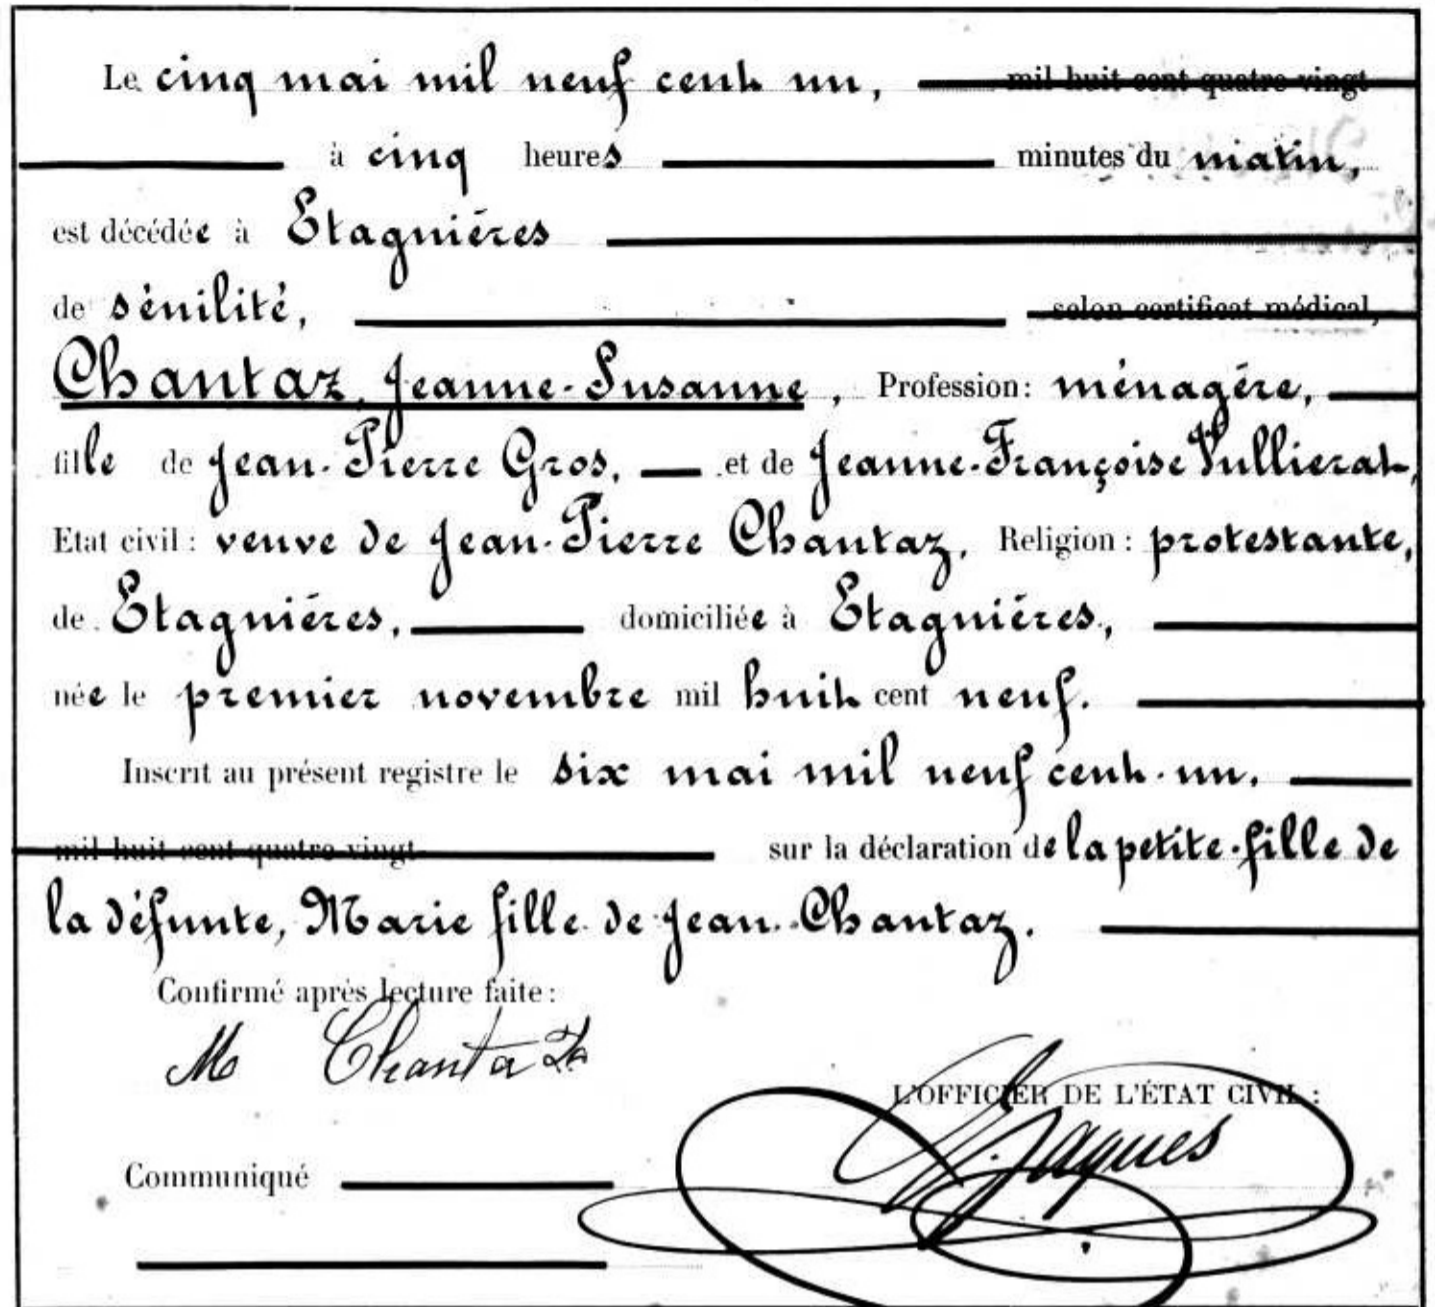 Le cinq mai mil neuf cent un, mil huit cent quatre-vingt
à cinq heures minutes du matin,
est décédée à Etagnières
de sénilité, selon certificat médical,
Chantaz, Jeanne-Susanne, Profession: ménagère,
fille de Jean-Pierre Gros, et de Jeanne-Françoise Vullierat,
Etat civil: veuve de Jean-Pierre Chantaz, Religion: protestante,
de Etagnières, domiciliée à Etagnières,
née le premier novembre mil huit cent neuf.
Inscrit au présent registre le six mai mil neuf cent-un,
mil huit cent quatre-vingt sur la déclaration de la petite-fille de
la défunte, Marie fille de Jean Chantaz.
Confirmé après lecture faite:
M Chantaz
L'OFFICIER DE L'ÉTAT CIVIL:
Jaques
Communiqué